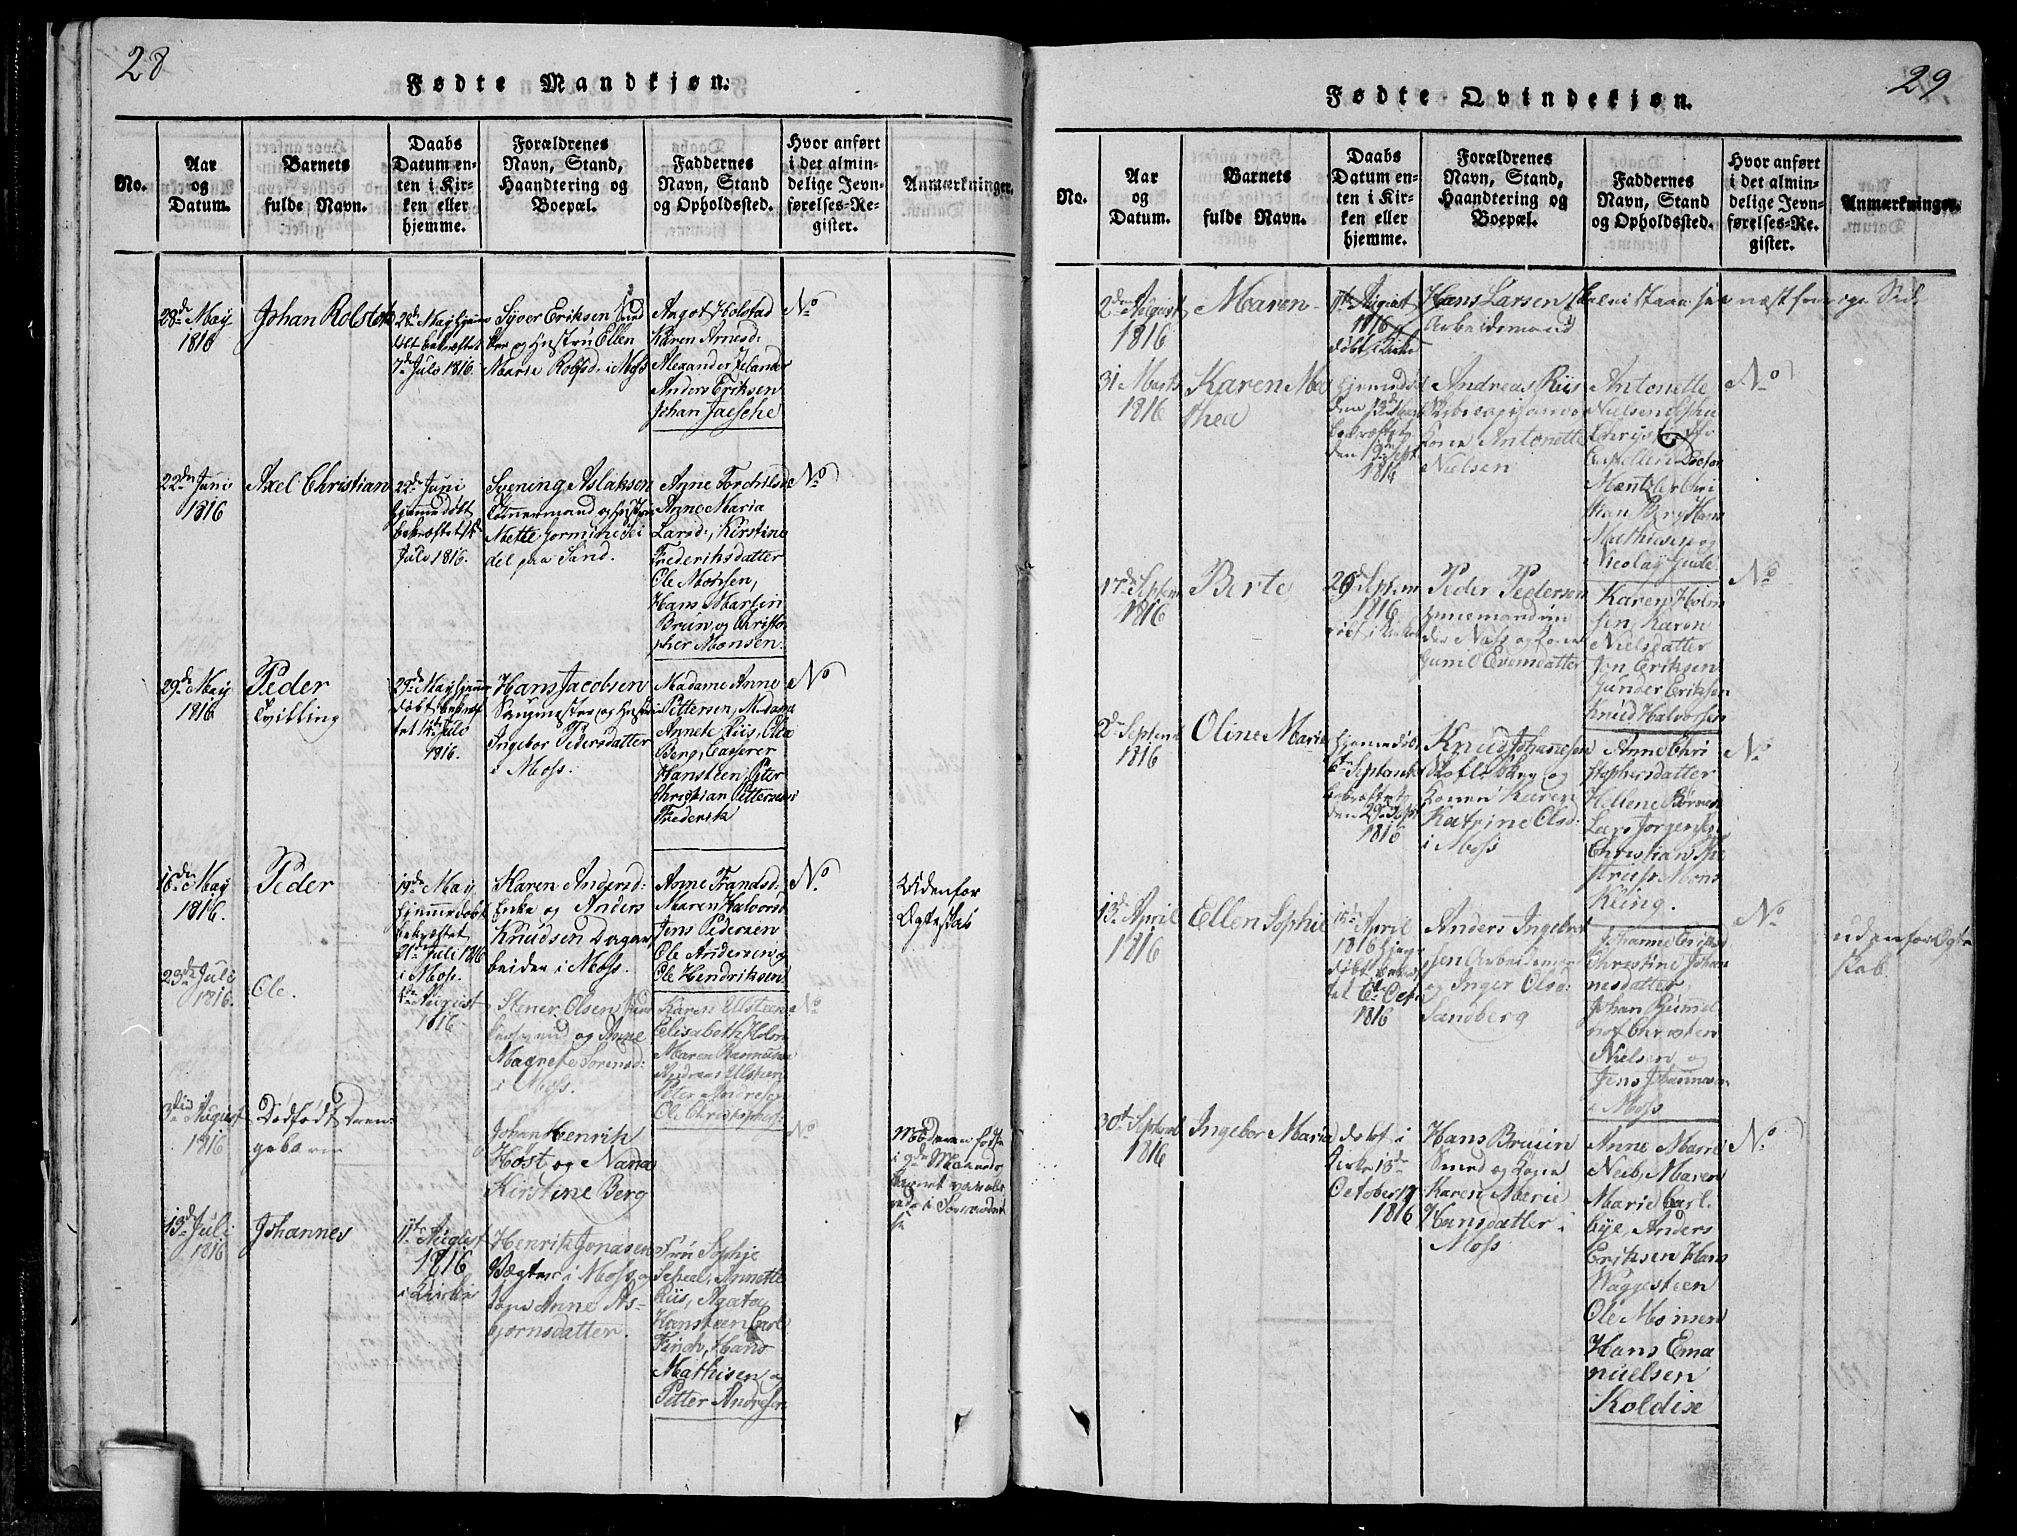 28
Fødte Mandkjøn.
No.
Aar
og
Datum.
Barnets
fulde Navn.
Daabs
Datum en-
ten i Kir-
ken eller
hjemme.
Forældrenes
Navn, Stand,
Haandtering og
Boepæl.
Faddernes
Navn, Stand
og Opholdssted.
Hvor anført
i det almin-
delige Jevn-
førelses-Re-
gister.
Anmærkninger.
28de May
1816
Johan Rolstok
7de Julo 1816.
Syver Eriksen
og Hustru Ellen
Marie Rolfsd. i Moss
Angot Holstad
Karen Arnesd:
Alexander Islander
Anders Eriksen
Johan Jaesche
No
22de Juni
1816
Axel Christian
22de Juni
hjemmedøbt
bekræftet 14de
Julo 1816.
Svening Aslaksen
Tømmermand og Hustru
Mette
del paa Sand.
Anne Torchilsd
Anne Maria
Larsd:, Kirstine
Frederiksdatter
Ole Morsen,
Hans Martin
Brun, og Christo-
pher Monsen.
No
29de May
1816
Peder
Tvilling
29de May hjemme
døbt bekræf
tet 14de Julo
1816.
Hans Jacobsen
Saugmester og Hustru
Ingebor Pedersdatter
i Moss.
Madame Anne
Pettersen, Madame
Annete Riis, Olea
Berg, Casserer
Hansteen, Peter
Christian Pettersen
Frederik
No
18de May
1816.
Peder
19de May
hjemmedøbt
bekræftet
21de Juli 1816
i Moss.
Karen Andersd:
Enke og Anders
Knudsen Dagar
beider i Moss.
Anne Frandsd:
Maren Halvorsd
Jens Pedersen
Ole Andersen og
Ole Hendriksen
No.
Udenfor
Ægteskab
23de Juli
1816.
Ole.
August
1816.
Stener Olsen
og Anne
Magrete Sorensd:
i Moss.
Karen Ulsteen
Elisabeth Holm
Maren Rasmussen
Andreas Ulsteen
Peter Andresen
Ole Christophers:
No
3die August
1816
Dødfødt Dren-
gebarn
Johan Henrik
Høst og Nana
Kirstine Berg
No
Moderen fødte
i 9de Maaned
13de Juli
1816
Johannes
11te August
1816
i Kirke
Henrik Jonasen
Vægter i Moss og
Kone Anne As-
bjørnsdatter.
Fru Sophie
Scheel, Annette
Riis, Agata
Hansteen, Carl
Finch, Hans
Mathisen, og
Petter Andresen
29
Fødte Qvindekjøn.
No.
Aar
og
Datum.
Barnets
fulde Navn.
Daabs
Datum en-
ten i Kir-
ken eller
hjemme.
Forældrenes
Navn, Stand,
Haandtering og
Boepæl.
Faddernes
Navn, Stand
og Opholdssted.
Hvor anført
i det almin-
delige Jevn-
førelses-Re-
gister.
Anmærkninger.
2den August
1816
Maren
11te August
1816
døbt i Kirke
Hans Larsen
Arbeidsmand
næst forrige Side
31 Marts
1816
Karen Ma
thea
hjemmedøbt
bekræftet
den 13de Sept
1816
Andreas Riis
Kone Antonette
Nielsen
Antonette
Nielsen, Sophia
Møntzler, Chri
stian Berg, Hans
Mathiesen og
Nicolay Gude
No
17de Septem
1816
Berte
29de Septem
1816
døbt i Kirke
Peder Pedersen
der Næss og Kone
Gunil Evensdatter
Karen Holm
sen, Karen
Nielsdatter
Jon Eriksen
Gunder Eriksen
Knud Halvorsen
No
2de Septem
1816
Oline Marie
hjemmedøbt
bekræftet
den 29de Sept
1816
Knud Johanesen
og
Konen Karen
Katrine Olsd:
i Moss
Anne Chri
stophersdatter
Hellene Børresen
Lars Jorgensen
Christian
Mons
Kling.
No
13de April
1816
Ellen Sophie
15de April
1816 hjem
døbt bekræf
tet 6te Octr.
1816
Anders Ingebret
sen Arbeidsman
og Inger Olsd
Sandberg
Johanne
Christine Johan
nesdatter
Johan Rummel
hof Christen
Nielsen og
Jens Johannesen
i Moss
No
udenfor Ægte
skab.
30te Septem
1816
Ingebor Maria
døbt i
Kirke 13de
October
1816
Hans Bruun
Smed og Kone
Karen Marie
Hansdatter i
Moss
Anne Marie
Neeb, Maren
Marie Carl
bye, Anders
Eriksen Hans
Waggesteen
Ole Monsen
Hans Ema
nuelsen
Koldixe
No